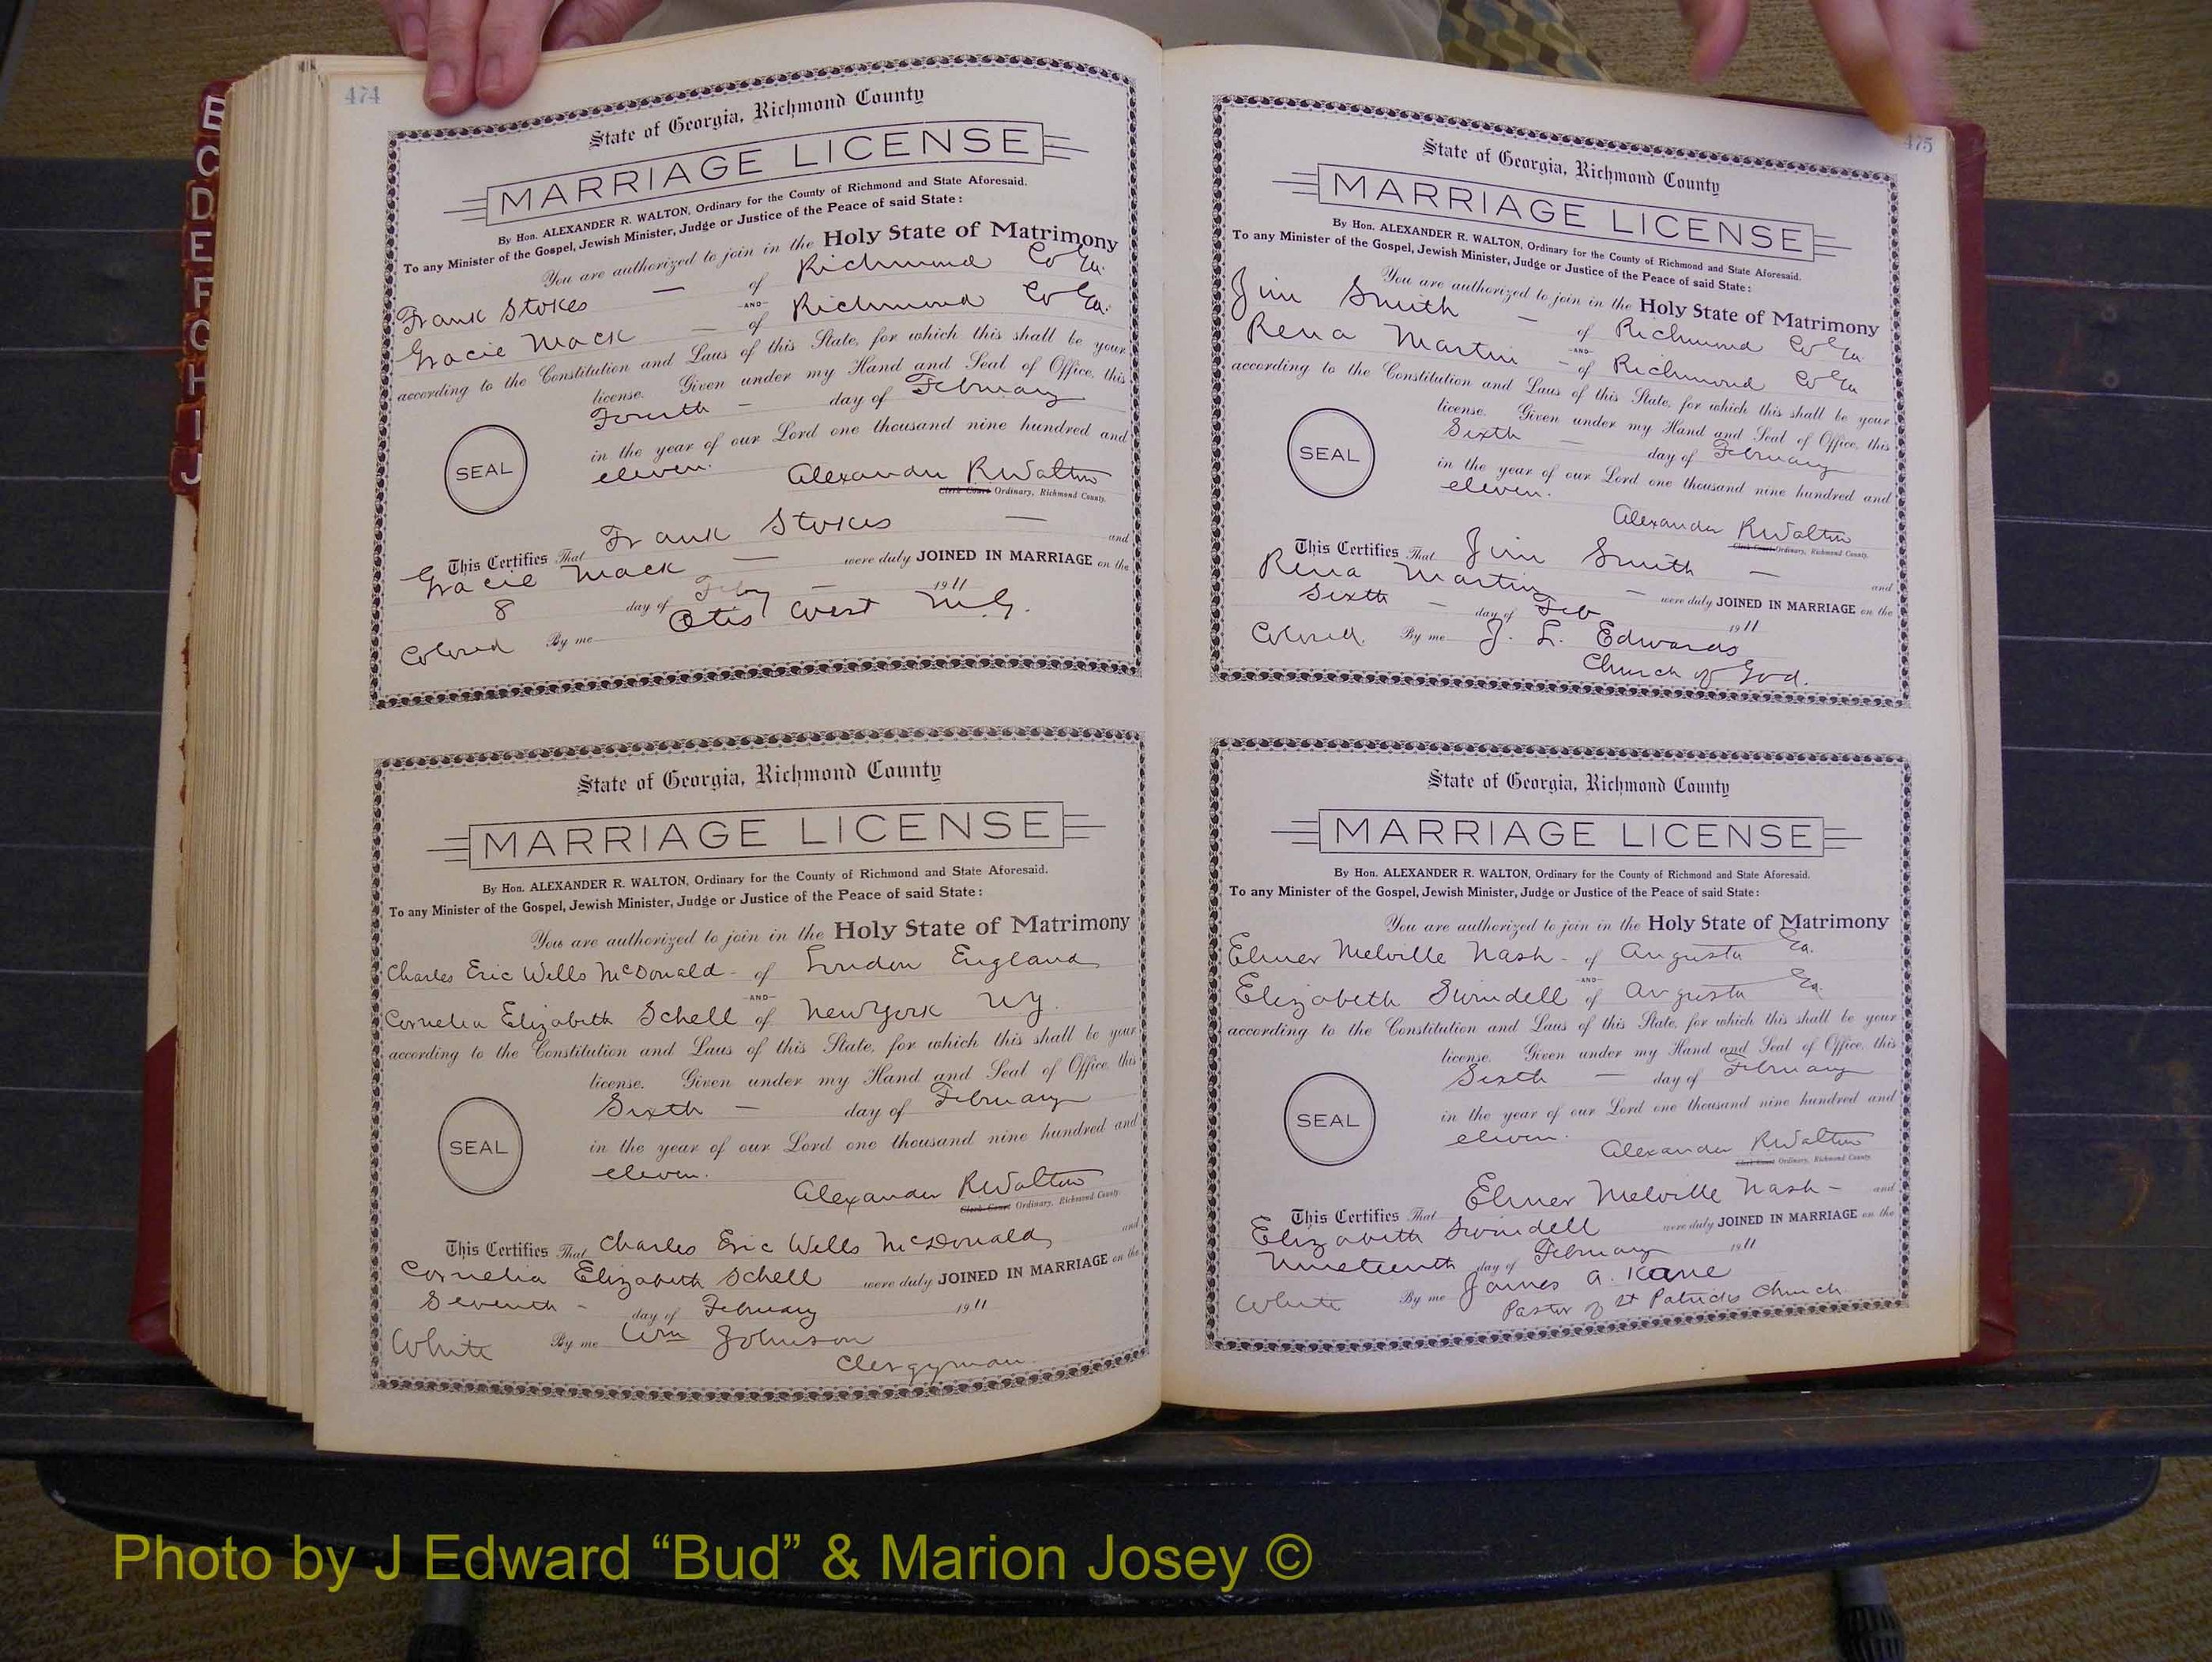 B
C
D
E
F
G
H
I
J
474
State of Georgia, Richmond County
MARRIAGE LICENSE
By Hon. ALEXANDER R. WALTON, Ordinary for the County of Richmond and State Aforesaid.
To any Minister of the Gospel, Jewish Minister, Judge or Justice of the Peace of said State:
You are authorized to join in the Holy State of Matrimony
Frank Stokes — of Richmond Co Ga.
-AND-
Gracie Mack — of Richmond Co Ga.
according to the Constitution and Laws of this State, for which this shall be your
license. Given under my Hand and Seal of Office, this
Fourth — day of February
in the year of our Lord one thousand nine hundred and
eleven.
SEAL
Alexander R Walton
Clerk Court Ordinary, Richmond County.
This Certifies That Frank Stokes — and
Gracie Mack — were duly JOINED IN MARRIAGE on the
8 day of Feby — 1911
Colored By me Otis West M.G.
State of Georgia, Richmond County
MARRIAGE LICENSE
By Hon. ALEXANDER R. WALTON, Ordinary for the County of Richmond and State Aforesaid.
To any Minister of the Gospel, Jewish Minister, Judge or Justice of the Peace of said State:
You are authorized to join in the Holy State of Matrimony
Charles Eric Wells McDonald - of London England
-AND-
Cornelia Elizabeth Schell of New York N.Y.
according to the Constitution and Laws of this State, for which this shall be your
license. Given under my Hand and Seal of Office, this
Sixth — day of February
in the year of our Lord one thousand nine hundred and
eleven.
SEAL
Alexander R Walton
Clerk Court Ordinary, Richmond County.
This Certifies That Charles Eric Wells McDonald and
Cornelia Elizabeth Schell were duly JOINED IN MARRIAGE on the
Seventh - day of February 1911
White By me Wm Johnson
Clergyman.
475
State of Georgia, Richmond County
MARRIAGE LICENSE
By Hon. ALEXANDER R. WALTON, Ordinary for the County of Richmond and State Aforesaid.
To any Minister of the Gospel, Jewish Minister, Judge or Justice of the Peace of said State:
You are authorized to join in the Holy State of Matrimony
Jim Smith — of Richmond Co Ga
-AND-
Rena Martin — of Richmond Co Ga
according to the Constitution and Laws of this State, for which this shall be your
license. Given under my Hand and Seal of Office, this
Sixth — day of February
in the year of our Lord one thousand nine hundred and
eleven.
SEAL
Alexander R Walton
Clerk Court Ordinary, Richmond County.
This Certifies That Jim Smith — and
Rena Martin — were duly JOINED IN MARRIAGE on the
Sixth — day of Feb 1911
Colored. By me J. L. Edwards
Church of God.
State of Georgia, Richmond County
MARRIAGE LICENSE
By Hon. ALEXANDER R. WALTON, Ordinary for the County of Richmond and State Aforesaid.
To any Minister of the Gospel, Jewish Minister, Judge or Justice of the Peace of said State:
You are authorized to join in the Holy State of Matrimony
Elmer Melville Nash - of Augusta Ga.
-AND-
Elizabeth Swindell of Augusta Ga.
according to the Constitution and Laws of this State, for which this shall be your
license. Given under my Hand and Seal of Office, this
Sixth — day of February
in the year of our Lord one thousand nine hundred and
eleven.
SEAL
Alexander R Walton
Clerk Court Ordinary, Richmond County.
This Certifies That Elmer Melville Nash - and
Elizabeth Swindell were duly JOINED IN MARRIAGE on the
Nineteenth day of February 1911
White By me James A. Kane
Pastor of St Patricks Church.
Photo by J Edward “Bud” & Marion Josey ©